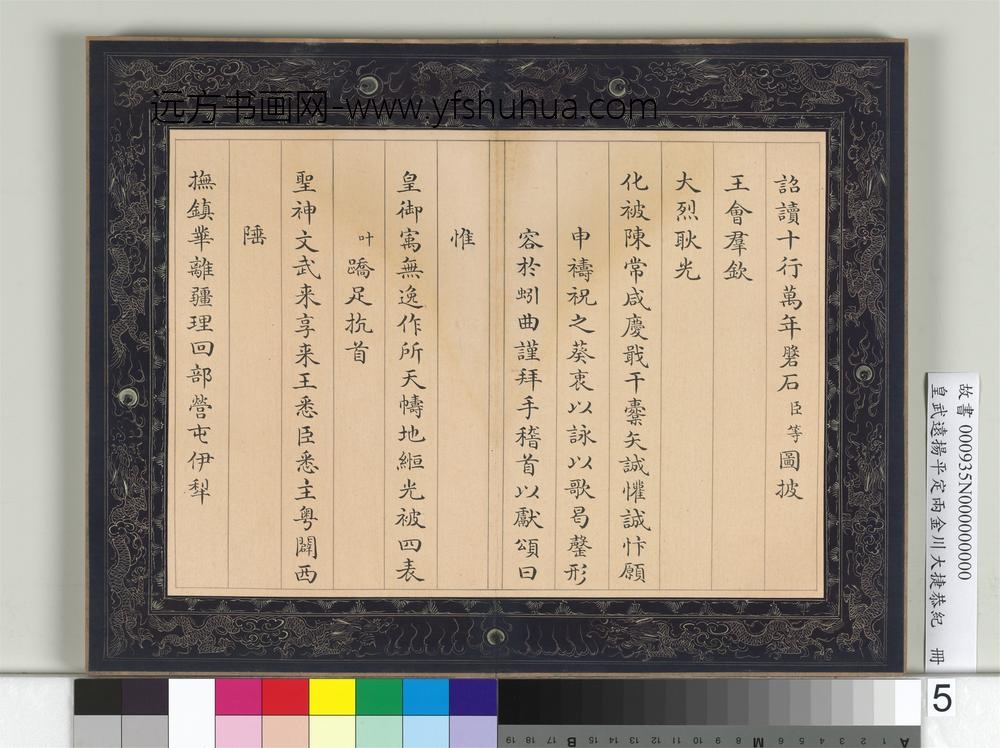 远方书画网-www.yfshuhua.com
詔讀十行萬年磐石臣等圖披
王會羣欽
大烈耿光
化被陳常咸慶戢干櫜矢誠懽誠忭願
申禱祝之葵衷以詠以歌曷罄形
容於蚓曲謹拜手稽首以獻頌曰
惟
皇御寓無逸作所天幬地縆光被四表
叶蹻足抗首
聖神文武来享来王悉臣悉主粤闢西
陲
撫鎮華離疆理回部營屯伊犁
故書 000935N000000000
皇武遠揚平定兩金川大捷恭紀 冊
5
A 1 2 3 4 5 6 7 8 9 10 M 11 12 13 14 15 B 17 18 19